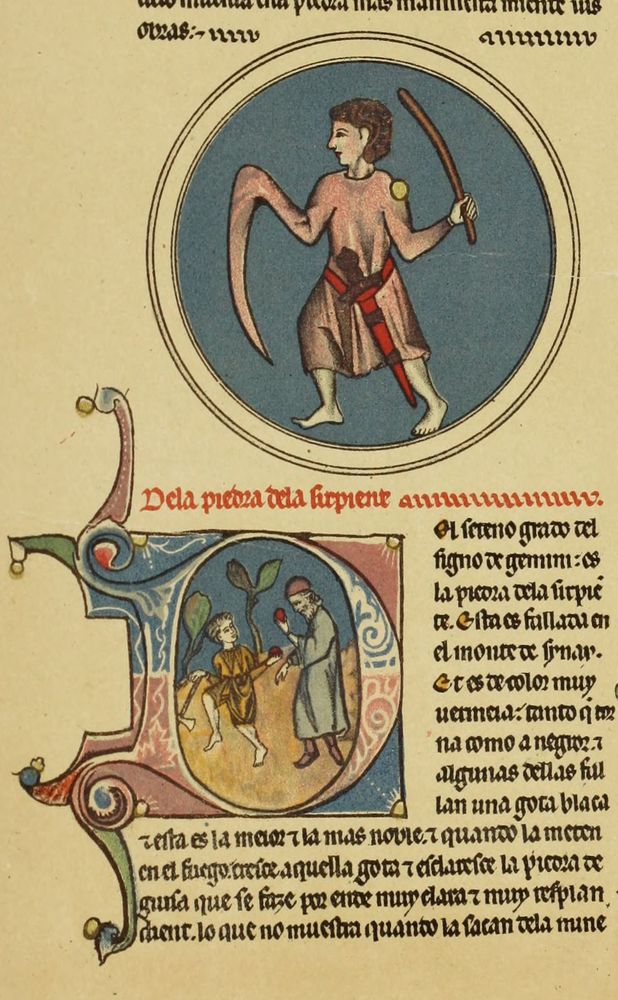 piedra mas
obras:~
Dela piedra dela sirpiente
El seteno grado del
signo de gemini: es
la piedra dela sirpiẽ
te. Esta es fallada en
el monte de synay.
Et es de color muy
uermeia: tanto q̃ tor
na como a negror. ⁊
algunas dellas fal
lan una gota blãca
⁊ esta es la meior ⁊ la mas noble. ⁊ quando la meten
en el fuego. cresce aquella gota ⁊ esclaresce la piedra de
guisa que se faze por ende muy clara ⁊ muy resplan
dient. lo que no muestra quando la sacan dela mine